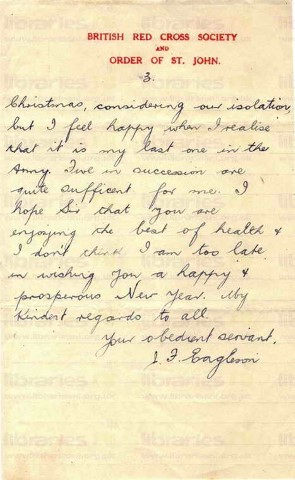 BRITISH RED CROSS SOCIETY
AND
ORDER OF ST. JOHN.
3
Christmas, considering our isolation,
but I feel happy when I realise
that it is my last one in the
Army. Five in succession are
quite sufficent for me. I
hope Sir that you are
enjoying the best of health &
I don't think I am too late
in wishing you a happy &
prosperous New Year. My
kindest regards to all.
Your obedient servant,
J. F. Eagleson
libraries